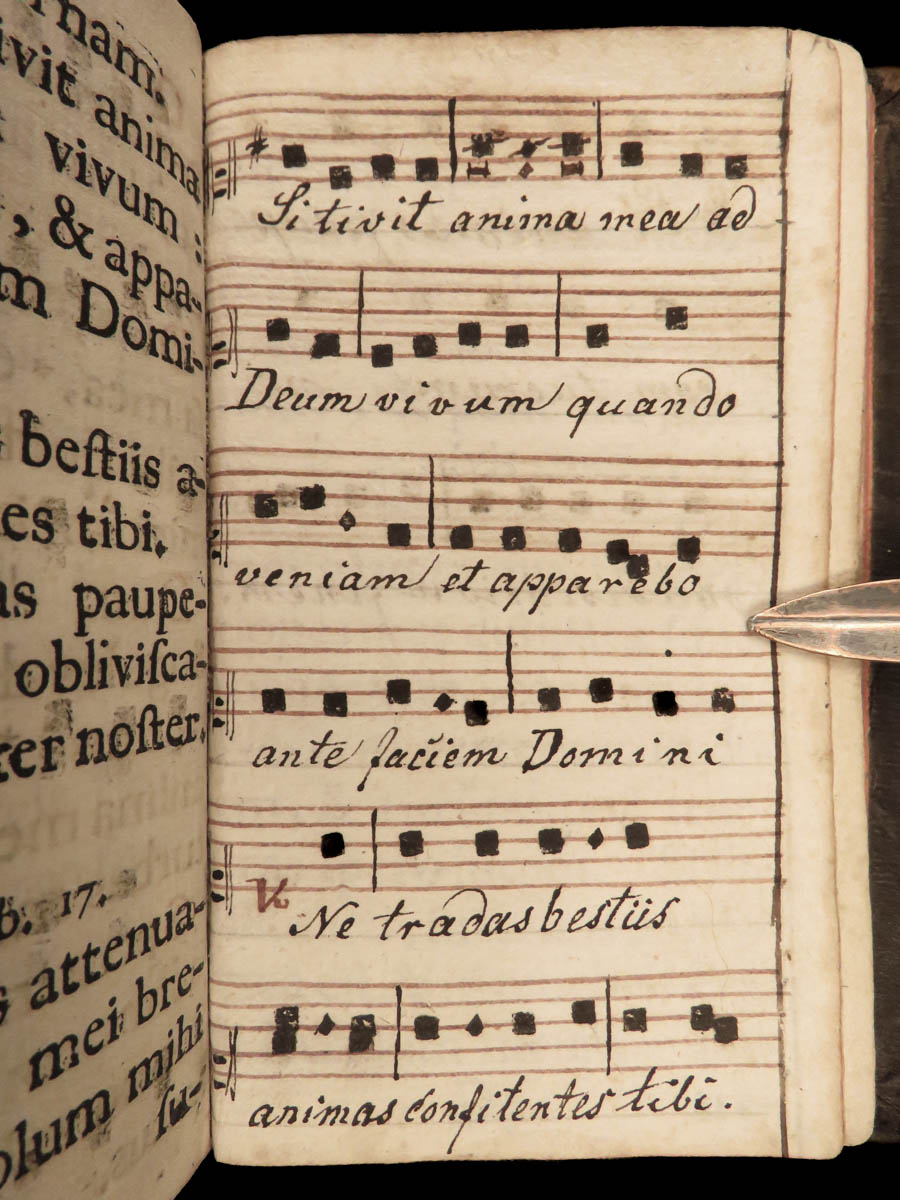 rnam.
ivit anima
vivum :
, & appa-
m Domi-
beſtiis a-
es tibi.
as paupe-
obliviſca-
ter noſter.
b. 17.
attenua-
mei bre-
olum mihi
ſu-
Sitivit anima mea ad
Deum vivum quando
veniam et apparebo
ante faciem Domini
V.
Ne tradas bestiis
animas confitentes tibi.